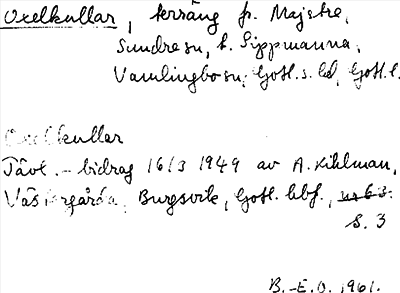 Oxelkullar, terräng fr. Majstre,
Sundre sn, t. Sippmanna,
Vamlingbo sn, Gotl. s. hd, Gotl. l.
Oxelkullar
Tävl. - bidrag 16/3 1949 av A. Kihlman,
Västergårda, Burgsvik, Gotl. bbf., nr 63.
S. 3
B.-E.O. 1961.